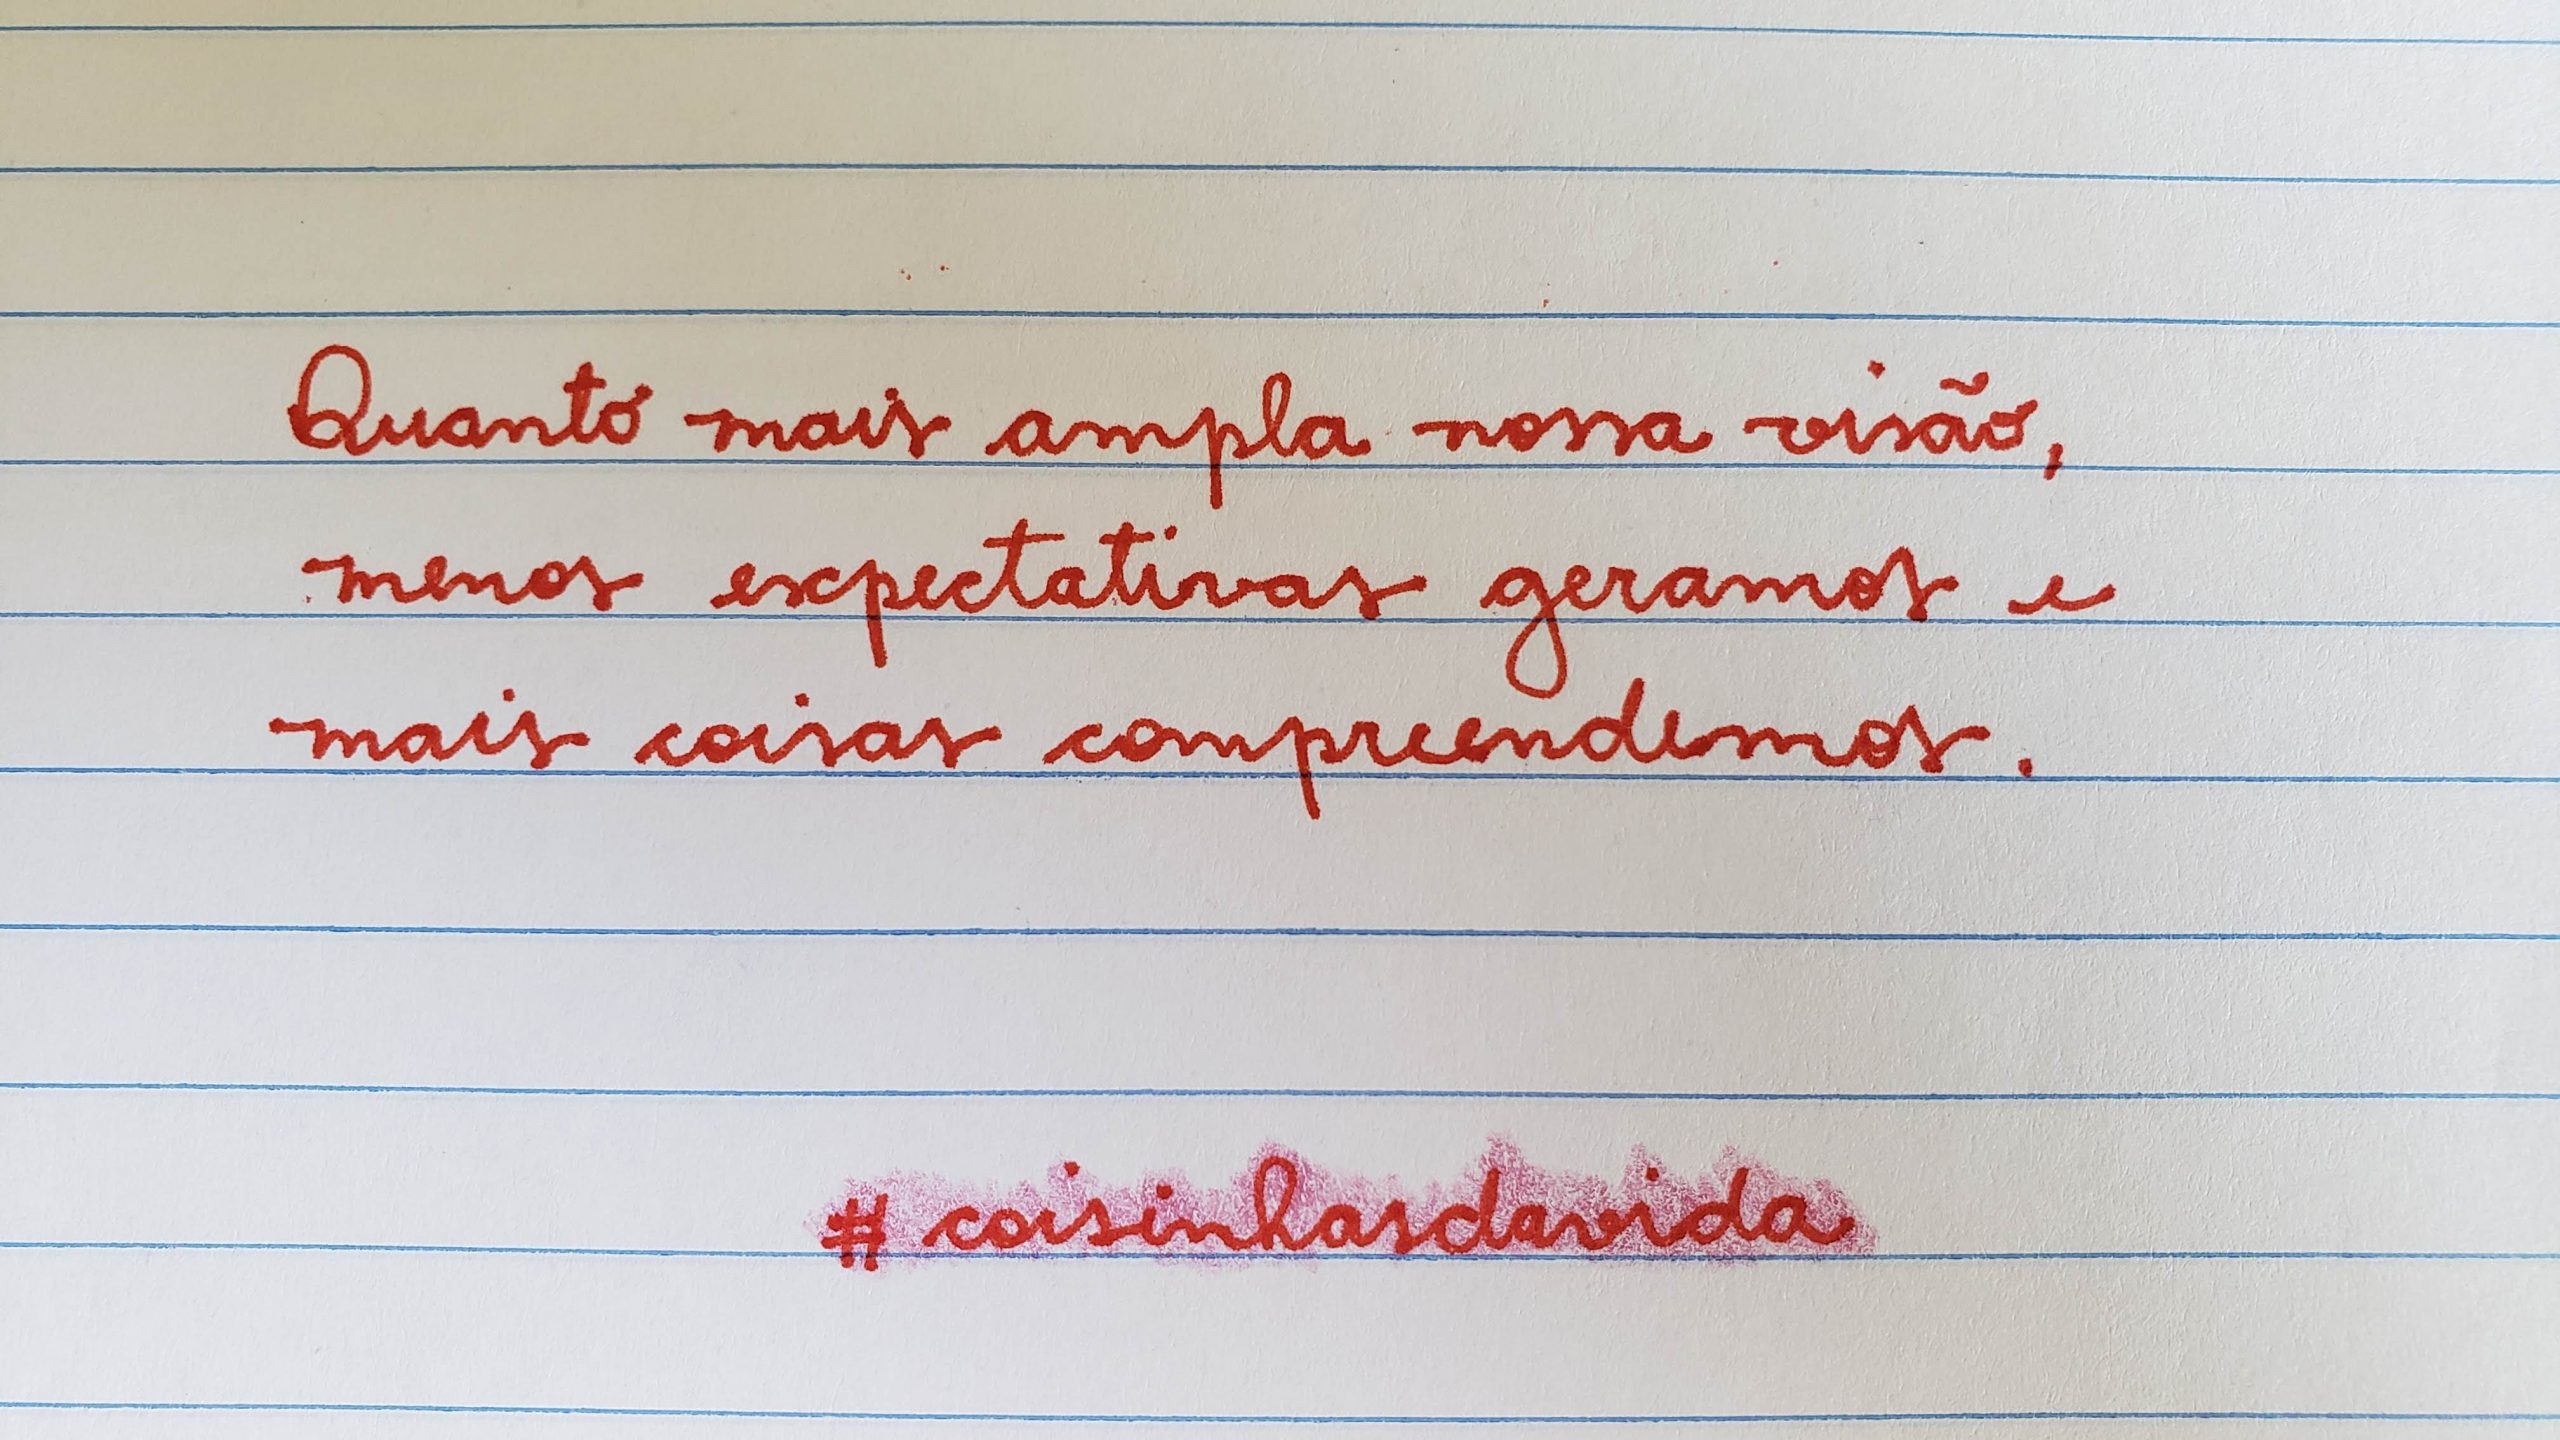 Quanto mais ampla nossa visão,
menos expectativas geramos e
mais coisas compreendemos.
#coisinhasdavida